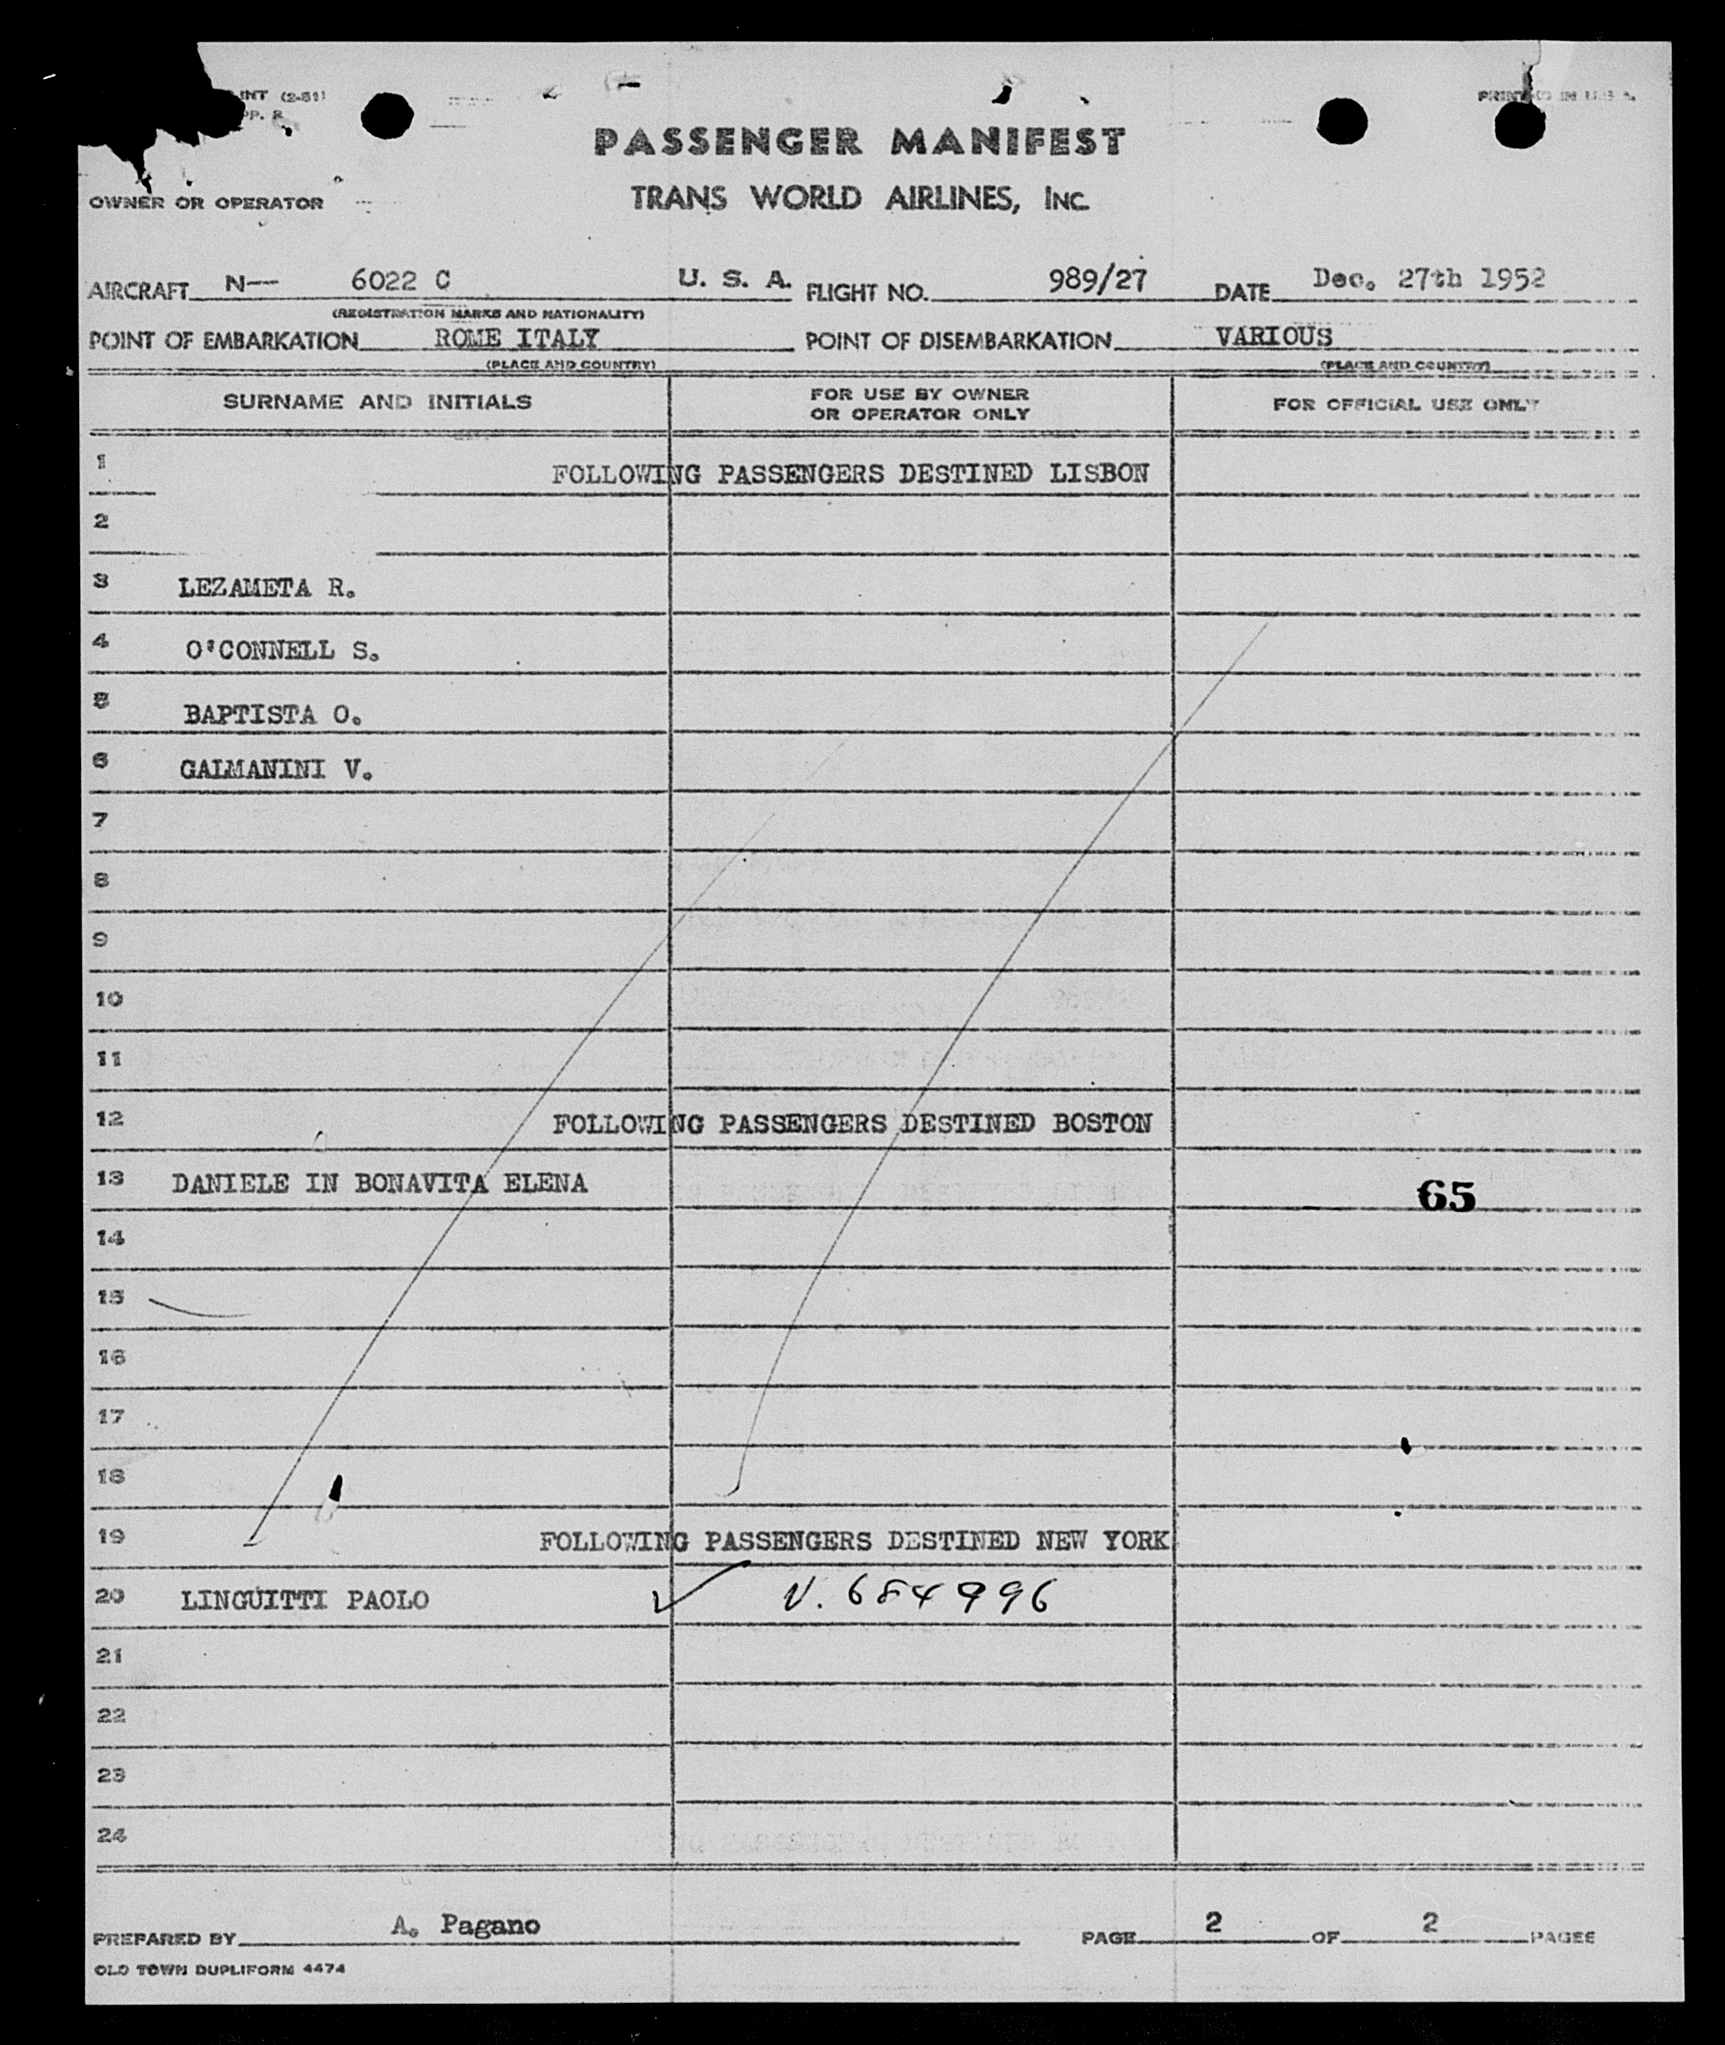 INT (2-51)
PP. R
PRINTED IN U.S.A.
PASSENGER MANIFEST
OWNER OR OPERATOR
TRANS WORLD AIRLINES, INC.
AIRCRAFT N— 6022 C U. S. A. FLIGHT NO. 989/27 DATE Dec. 27th 1952
(REGISTRATION MARKS AND NATIONALITY)
POINT OF EMBARKATION ROME ITALY POINT OF DISEMBARKATION VARIOUS
(PLACE AND COUNTRY) (PLACE AND COUNTRY)
SURNAME AND INITIALS FOR USE BY OWNER OR OPERATOR ONLY FOR OFFICIAL USE ONLY
1 FOLLOWING PASSENGERS DESTINED LISBON
2
3 LEZAMETA R.
4 O'CONNELL S.
5 BAPTISTA O.
6 GALMANINI V.
7
8
9
10
11
12 FOLLOWING PASSENGERS DESTINED BOSTON
13 DANIELE IN BONAVITA ELENA 65
14
15
16
17
18
19 FOLLOWING PASSENGERS DESTINED NEW YORK
20 LINGUITTI PAOLO ✓ V. 684996
21
22
23
24
PREPARED BY A. Pagano PAGE 2 OF 2 PAGES
OLD TOWN DUPLIFORM 4474